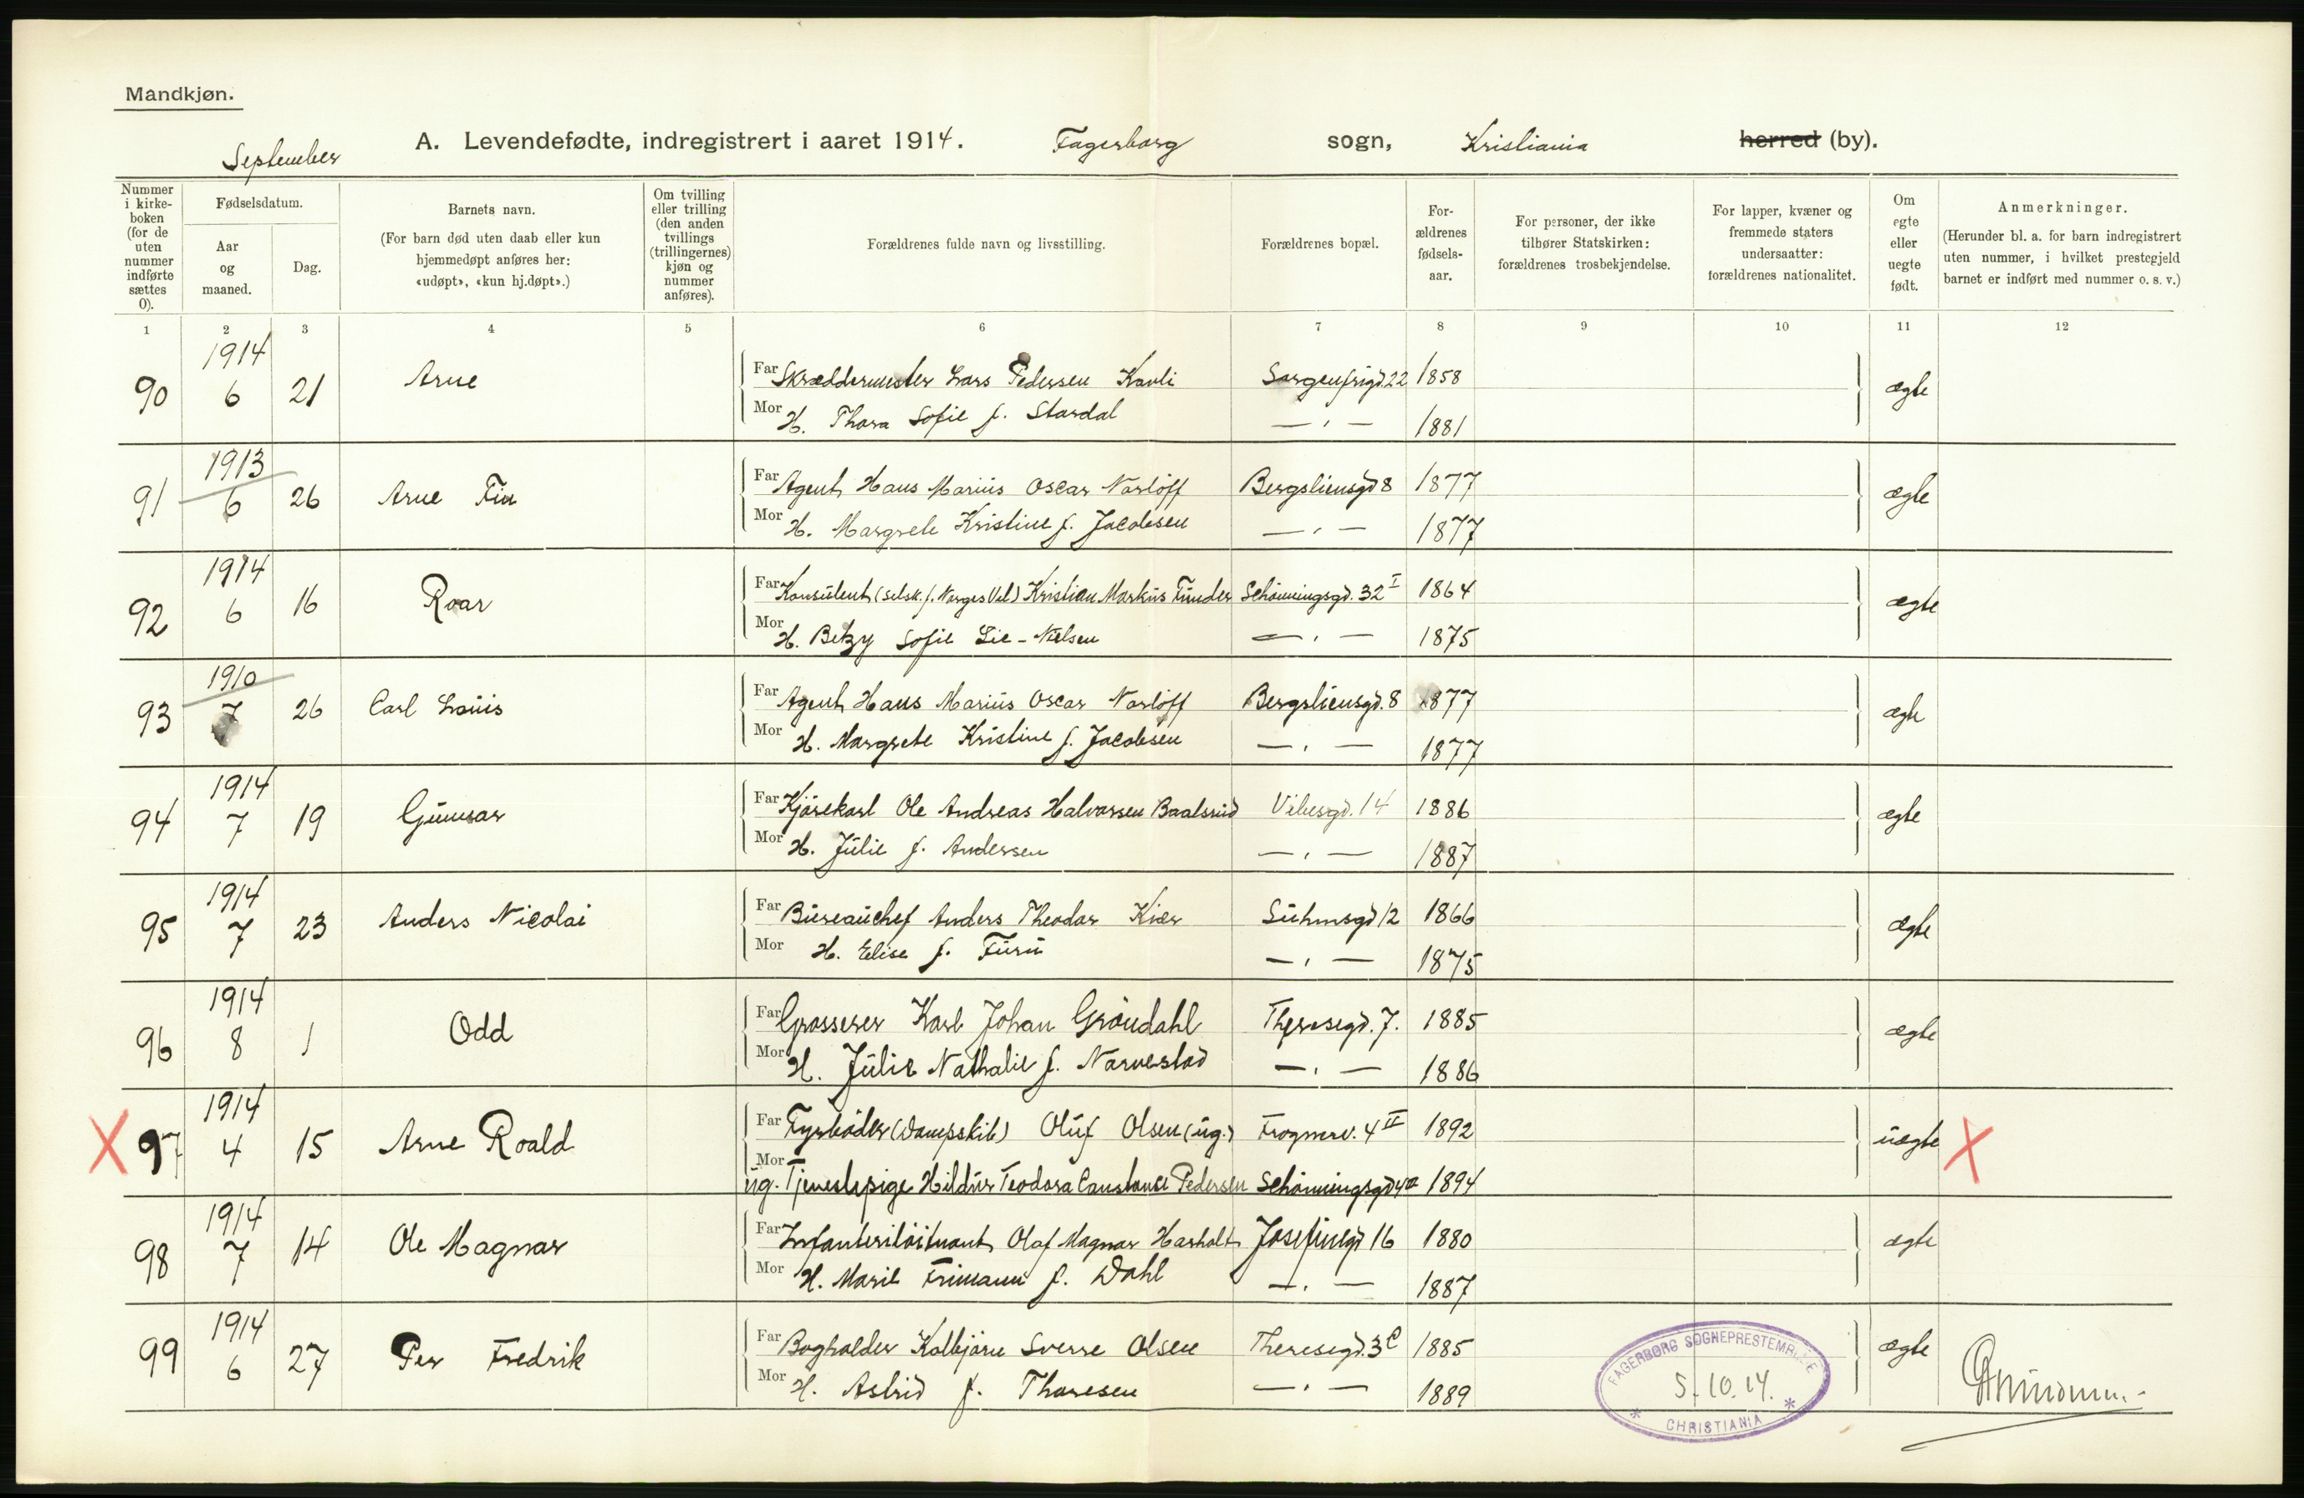 Mandkjøn.
September A. Levendefødte, indregistrert i aaret 1914. Fagerborg sogn, Kristiania herred (by).
Nummer i kirke-boken (for de uten nummer indførte sættes 0).
Fødselsdatum.
Aar og maaned.
Dag.
Barnets navn.
(For barn død uten daab eller kun hjemmedøpt anføres her: «udøpt», «kun hj.døpt».)
Om tvilling eller trilling (den anden tvillings (trillingernes) kjøn og nummer anføres).
Forældrenes fulde navn og livsstilling.
Forældrenes bopæl.
For-ældrenes fødsels-aar.
For personer, der ikke tilhører Statskirken: forældrenes trosbekjendelse.
For lapper, kvæner og fremmede staters undersaatter: forældrenes nationalitet.
Om egte eller uegte født.
Anmerkninger.
(Herunder bl. a. for barn indregistrert uten nummer, i hvilket prestegjeld barnet er indført med nummer o. s. v.)
1 2 3 4 5 6 7 8 9 10 11 12
1914
90 6 21 Arne Far Skræddermester Lars Pedersen Kavli Sorgenfrigd. 22 1858 ægte
Mor H. Thora Sofie f. Stardal — " — 1881
1913
91 6 26 Arne Fin Far Agent Hans Marius Oscar Narløff Bergsliensgd 8 1877 ægte
Mor H. Margrete Kristine f. Jacobsen — " — 1877
1914
92 6 16 Roar Far Konsulent (Selsk. f. Norges Vel) Kristian Markus Funder Schönningsgd. 32 I 1864 ægte
Mor H. Betzy Sofie Lie-Nielsen — " — 1875
1910
93 7 26 Carl Louis Far Agent Hans Marius Oscar Narløff Bergsliensgd. 8 1877 ægte
Mor H. Margrete Kristine f. Jacobsen — " — 1877
1914
94 7 19 Gunnar Far Kjørekarl Ole Andreas Halvorsen Baalsrud Vibesgd. 14 1886 ægte
Mor H. Julie f. Andersen — " — 1887
1914
95 7 23 Anders Nicolai Far Bureauchef Anders Theodor Kiær Suhmsgd 12 1866 ægte
Mor H. Elise f. Furu — " — 1875
1914
96 8 1 Odd Far Grosserer Karl Johan Gröndahl Theresegd. 7. 1885 ægte
Mor H. Julie Nathalie f. Narvestad — " — 1886
1914
X 97 4 15 Arne Roald Far Fyrbøder (Dampskib) Oluf Olsen (ug.) Frognerv. 4 II 1892 uægte X
Mor ug. Tjenestepige Hildur Teodora Constance Pedersen Schönningsgd 4a 1894
1914
98 7 14 Ole Magnar Far Infanteriløitnant Olaf Magnar Harholt Josefinegd 16 1880 ægte
Mor H. Marie Frimann f. Dahl — " — 1887
1914
99 6 27 Per Fredrik Far Bogholder Kolbjørn Sverre Olsen Theresegd. 3c 1885 ægte
Mor H. Astrid f. Thoresen — " — 1889
FAGERBORG SOGNEPRESTEMBEDE
5.10.14.
* CHRISTIANIA *